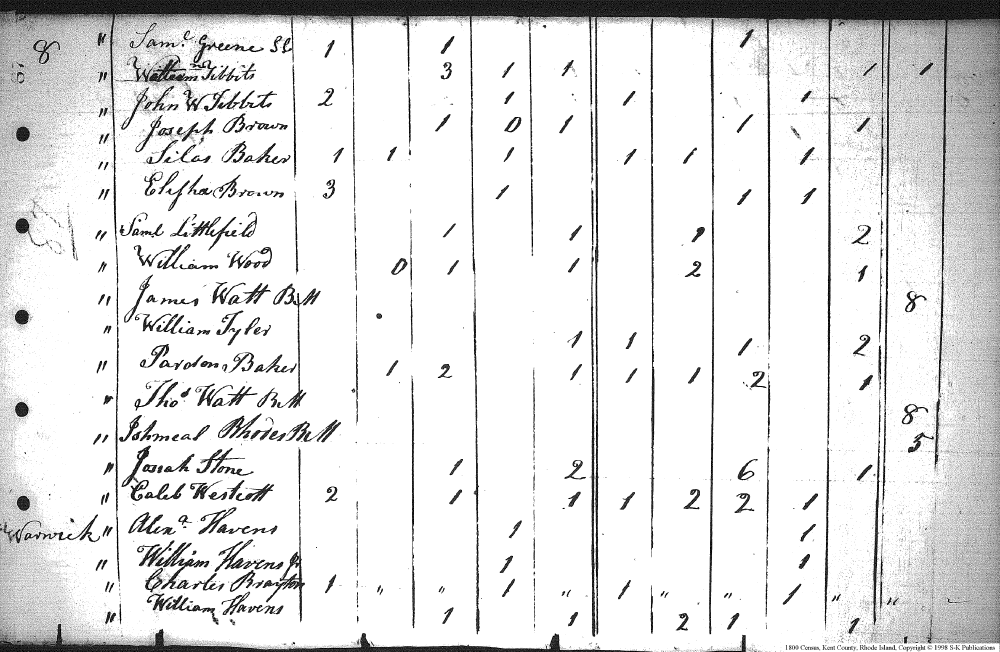 8 " Sam.l Greene 1 1 1
" William Tibbits 3 1 1 1 1
" John W Tibbits 2 1 1 1
" Joseph Brown 1 0 1 1 1
" Silas Baker 1 1 1 1 1 1
" Elisha Brown 3 1 1 1
" Saml Littlefield 1 1 1 2
" William Wood 0 1 1 2 1
" James Watt 8
" William Tyler 1 1 1 2
" Pardon Baker 1 2 1 1 1 2 1
" Tho.s Watt 8
" Ishmeal Rhodes 5
" Josiah Stone 1 2 6 1
" Caleb Westcott 2 1 1 1 2 2 1
Warwick " Alex.a Havens 1 1
" William Havens Jr 1 1
" Charles Brayton 1 " " 1 " 1 " " 1 " "
" William Havens 1 1 2 1 1
1800 Census, Kent County, Rhode Island, Copyright © 1998 S-K Publications